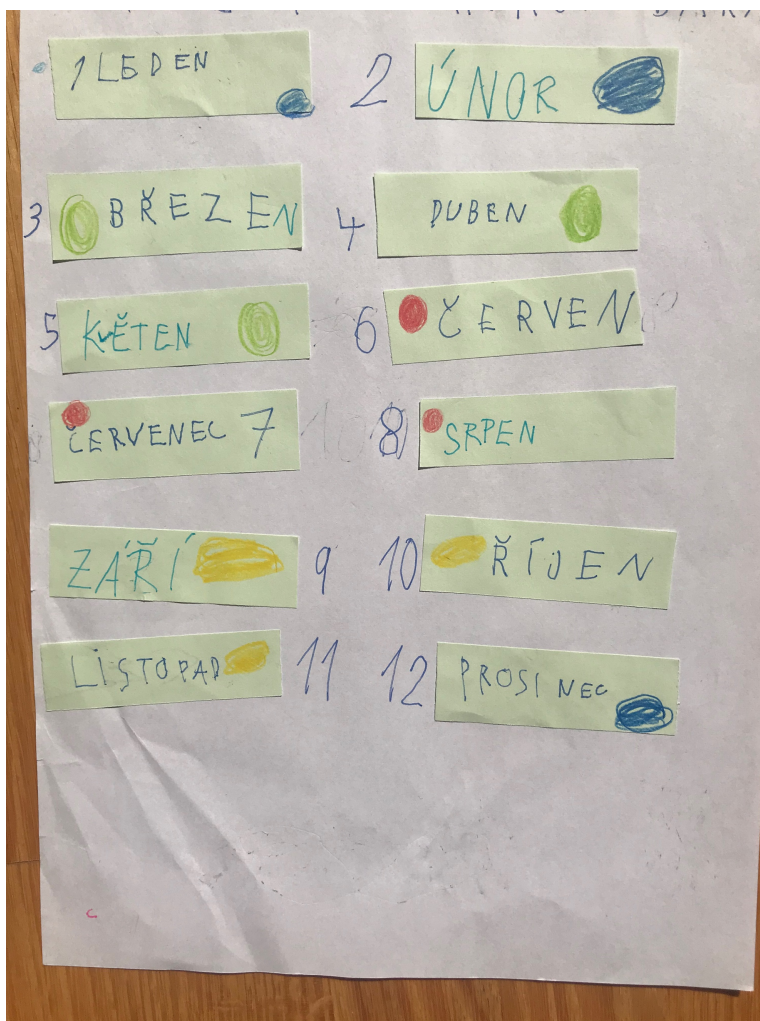 1 LEDEN 2 ÚNOR
3 BŘEZEN 4 DUBEN
5 KVĚTEN 6 ČERVEN
ČERVENEC 7 8 SRPEN
ZÁŘÍ 9 10 ŘÍJEN
LISTOPAD 11 12 PROSINEC